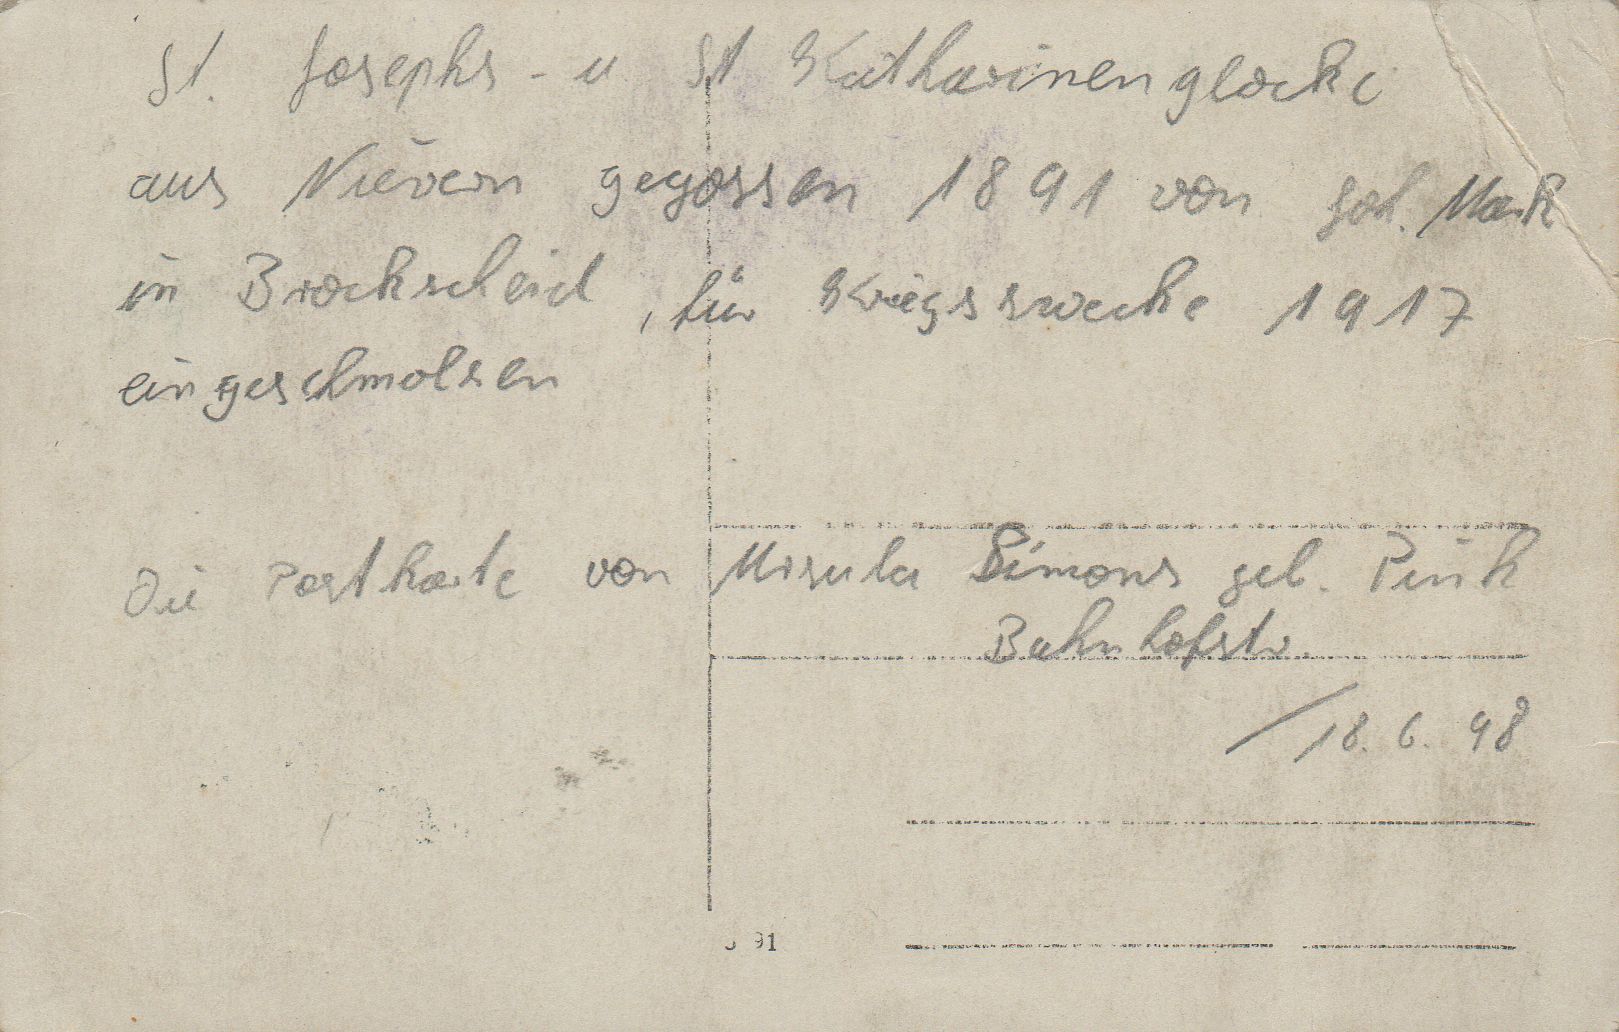 St. Josephs - u St Katharinenglocke
aus Nievern gegossen 1891 von Joh. Mark
in Brockscheid, für Kriegszwecke 1917
eingeschmolzen
Die Postkarte von Ursula Simons geb. Pink
Bahnhofstr.
/18.6.98
91